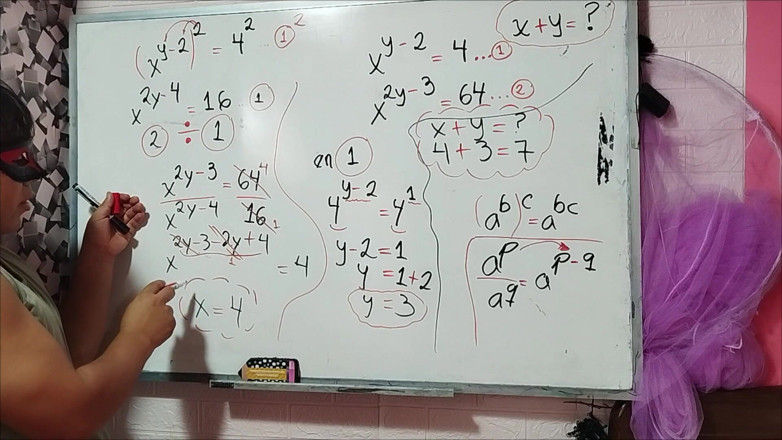 (x^(y-2))^2 = 4^2 ... ①^2
x^(2y-4) = 16 ... ①
② ÷ ①
x^(2y-3) / x^(2y-4) = 64 / 16
4
1
x^(2y-3-2y+4) = 4
1
x = 4
x + y = ?
x^(y-2) = 4 ... ①
x^(2y-3) = 64 ... ②
x + y = ?
4 + 3 = 7
en ①
4^(y-2) = 4^1
y - 2 = 1
y = 1 + 2
y = 3
(a^b)^c = a^(bc)
a^p / a^q = a^(p-q)